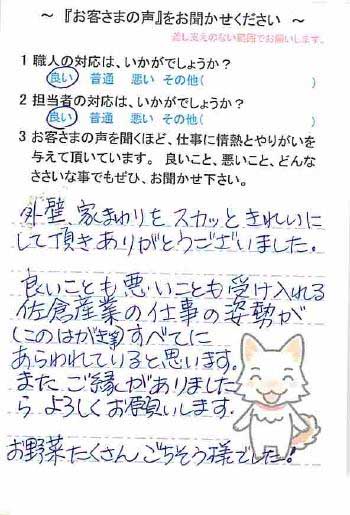 ～ 『お客さまの声』をお聞かせください ～
差し支えのない範囲でお願いします。
1 職人の対応は、いかがでしょうか？
良い 普通 悪い その他( )
2 担当者の対応は、いかがでしょうか？
良い 普通 悪い その他( )
3 お客さまの声を聞くほど、仕事に情熱とやりがいを
与えて頂いています。 良いこと、悪いこと、どんな
ささいな事でもぜひ、お聞かせ下さい。
外壁、家まわりを スカッと きれいに
して頂き ありがとうございました。
良いことも 悪いことも 受け入れる
佐倉産業の仕事の姿勢が
(このはがき等)すべてに
あらわれていると思います。
また ご縁が ありました
ら よろしく お願いします。
お野菜たくさん ごちそう様でした!